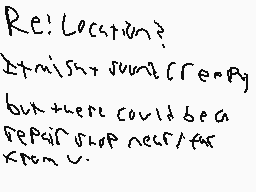 Re: Location?
It might sound creepy
but there could be a
repair shop near/far
from u.